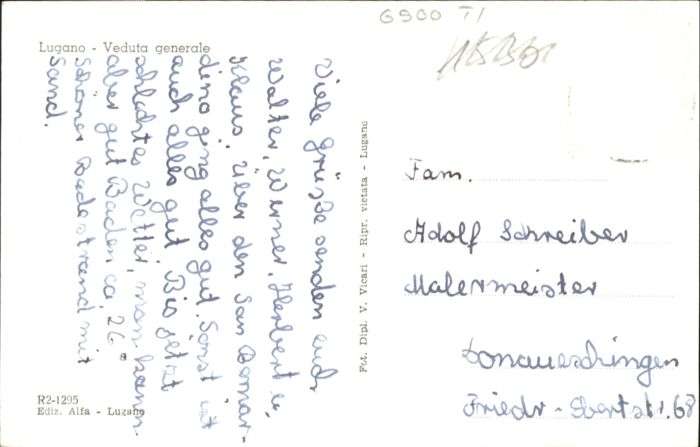 6900 TI
Lugano - Veduta generale
Viele Grüsse senden euch
Walter, Werner, Herbert u.
Klaus. Über den San Bernar-
dino ging alles gut. Sonst ist
auch alles gut. Bis jetzt
schlechtes Wetter, man kann
aber gut Baden ca 26°
schöner Badestrand mit
Sand.
Fot. Dipl. V. Vicari - Ripr. vietata - Lugano
Fam.
Adolf Schreiber
Malermeister
Donaueschingen
Friedr-Ebertstr. 68
R2-1295
Ediz. Alfa - Lugano